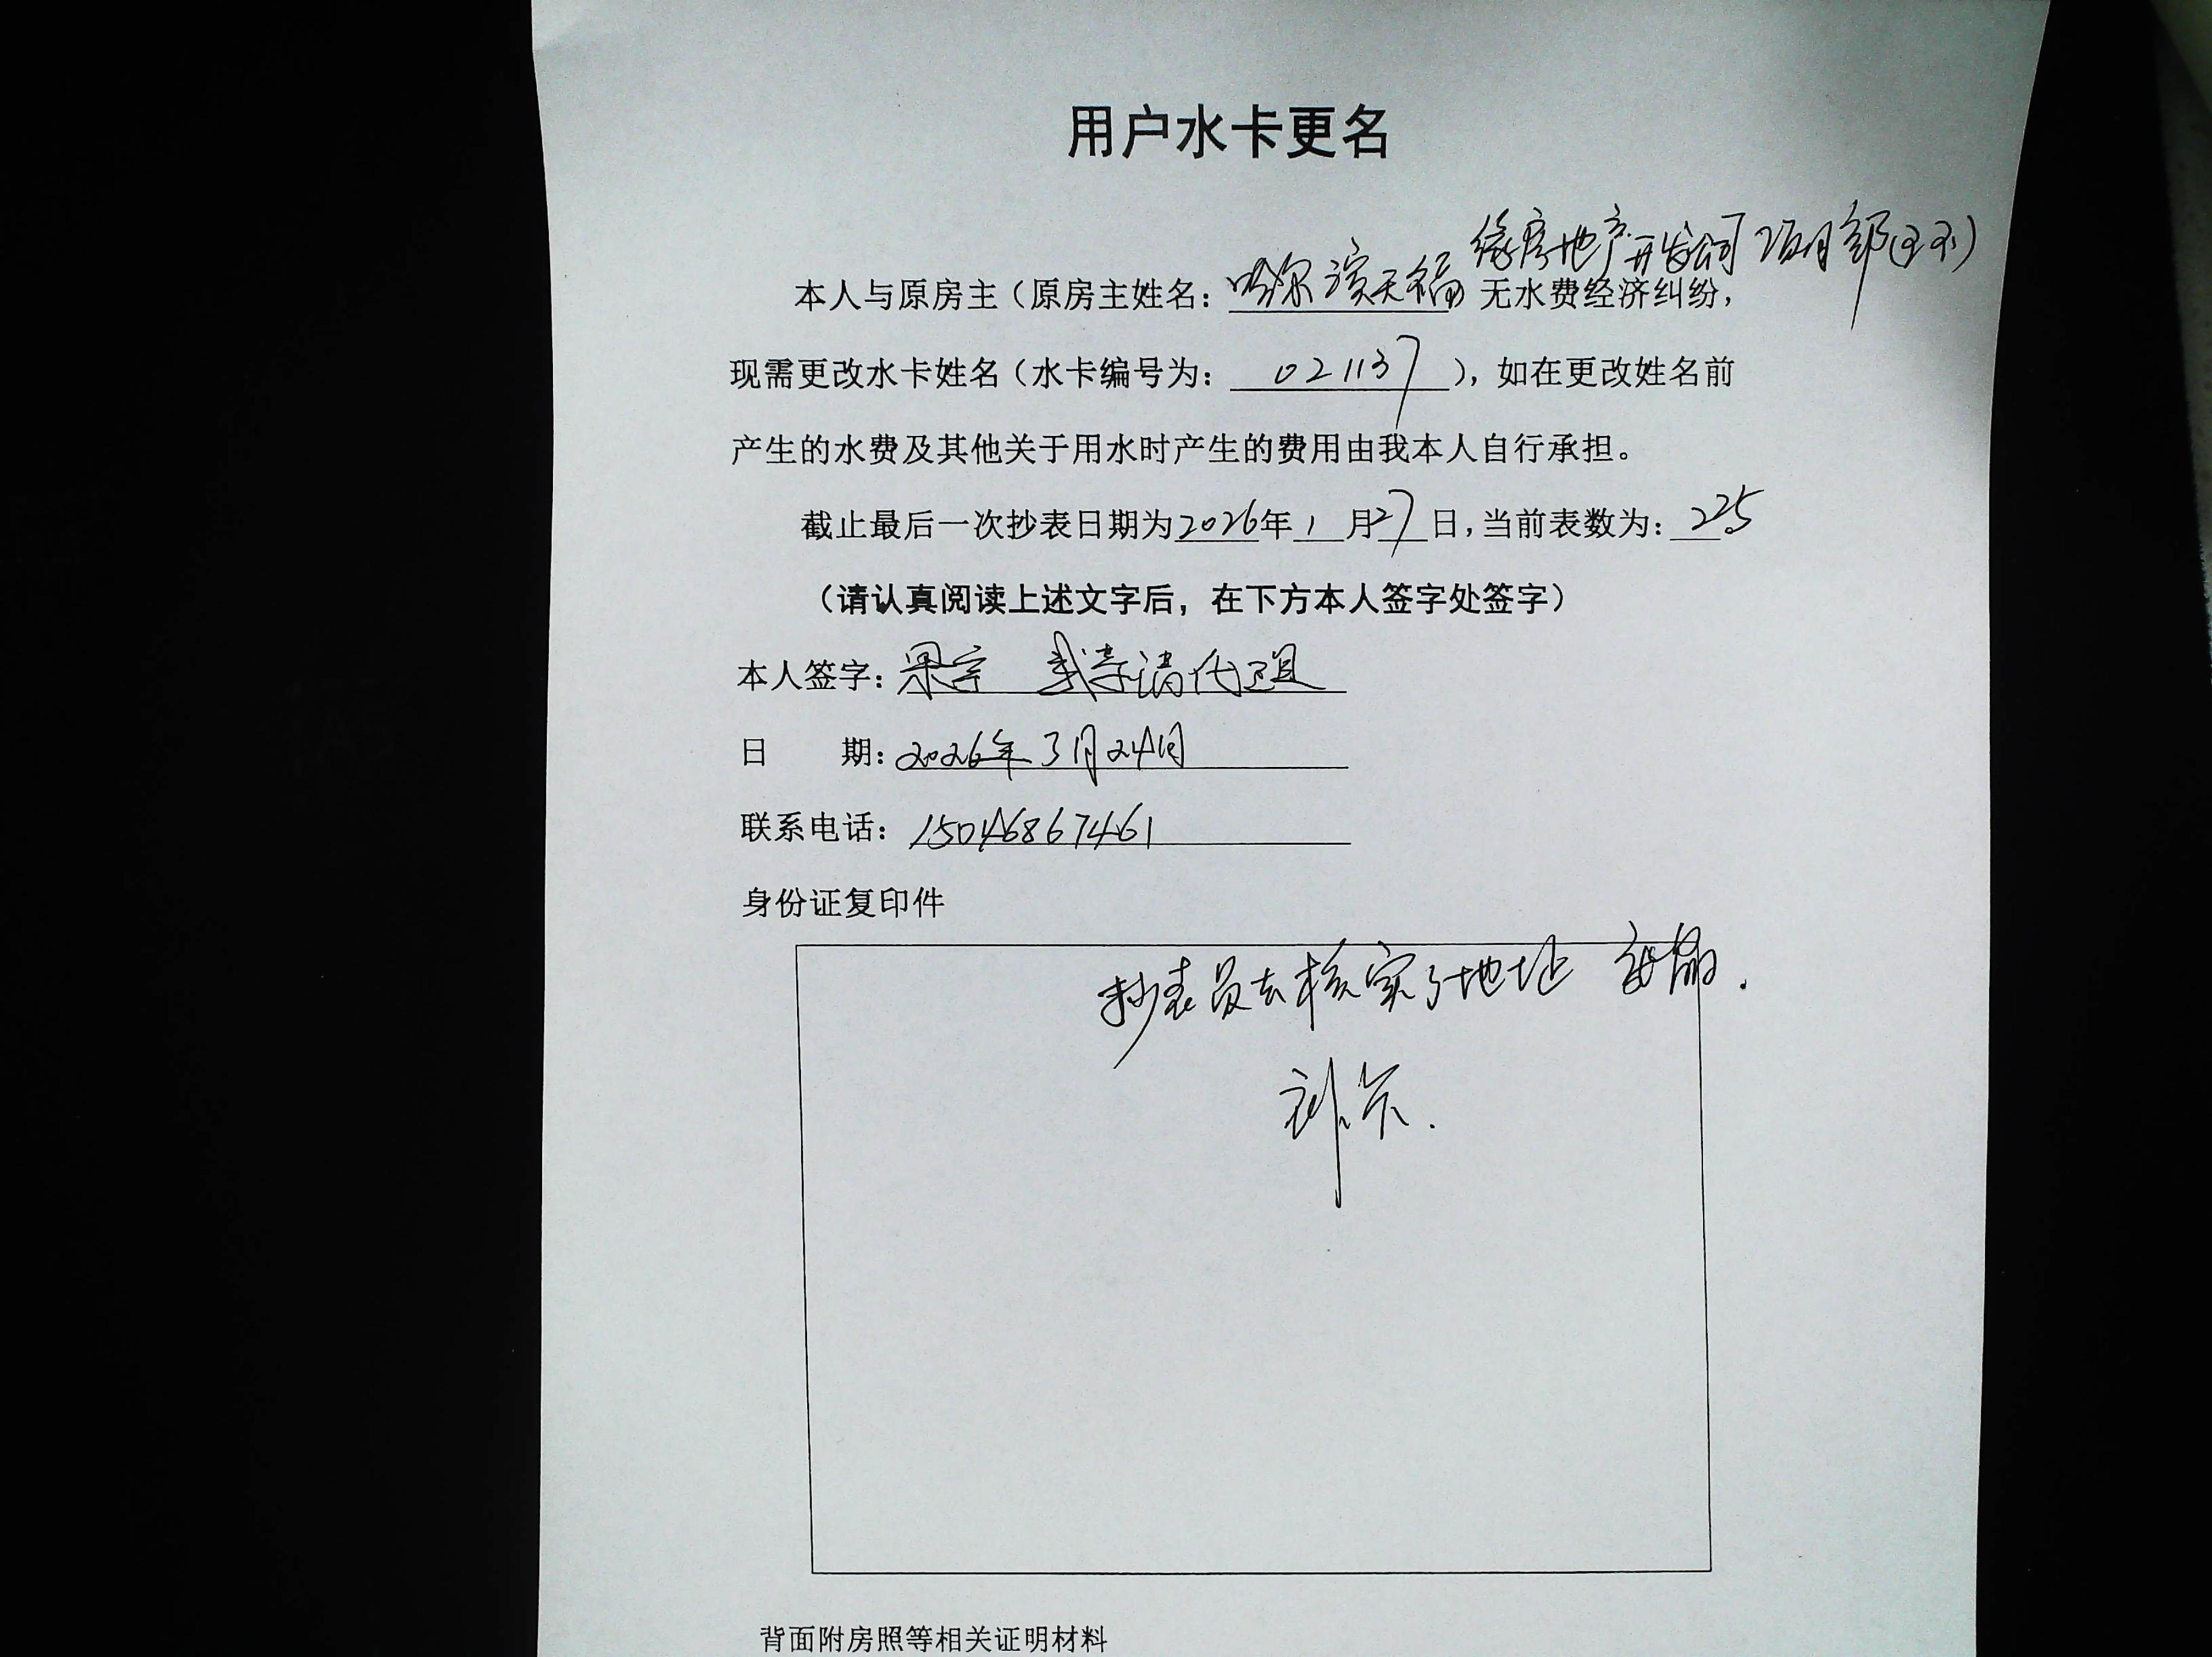 用户水卡更名
缘房地产开发公司项目部
本人与原房主（原房主姓名：哈尔滨天福 无水费经济纠纷，
现需更改水卡姓名（水卡编号为：021137），如在更改姓名前
产生的水费及其他关于用水时产生的费用由我本人自行承担。
截止最后一次抄表日期为2026年1月27日，当前表数为：225
（请认真阅读上述文字后，在下方本人签字处签字）
本人签字：梁宇
日 期：2026年3月24日
联系电话：15046867461
身份证复印件
抄表员去核实了地址
背面附房照等相关证明材料